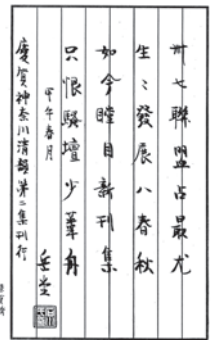 卅七聯盟占最尤
生〻發展八春秋
如今瞠目新刊集
只恨騷壇少筆舟
甲午春月
慶賀神奈川清韻第二集刊行
岳堂